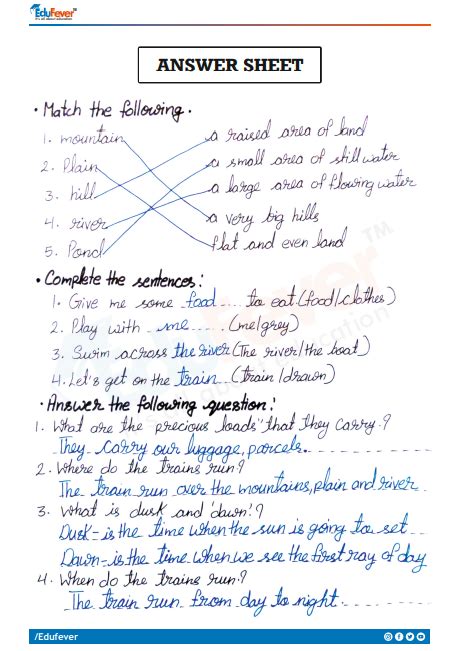 EduFever
It's all about education
ANSWER SHEET
• Match the following.
1. mountain a raised area of land
2. Plain a small area of still water
3. hill a large area of flowing water
4. river a very big hills
5. Pond flat and even land
• Complete the sentences:
1. Give me some food .... to eat (food/clothes)
2. Play with ..me.... (me/grey)
3. Swim across the river (The river/the boat)
4. Let's get on the train... (train/drawn)
• Answer the following question:
1. What are the precious loads "that they carry?
They carry our luggage, parcels.
2. Where do the trains run?
The train run over the mountaines, plain and river
3. What is dusk and 'dawn'?
Dusk-is the time when the sun is going to set
Dawn-is the time when we see the first ray of day
4. When do the trains run?
The train run from day to night.
/Edufever